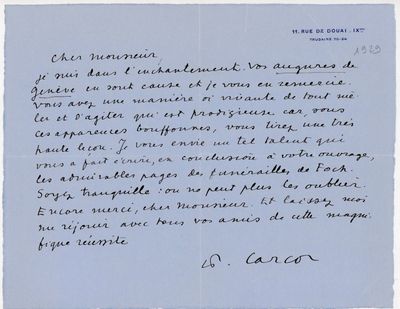 11, RUE DE DOUAI . IXme
TRUDAINE 70-24
1929
Cher Monsieur,
Je suis dans l'enchantement. Vos augures de
Genève en sont cause et je vous en remercie
vous avez une manière si vivante de tout mê-
ler et d'agiter qui est prodigieuse car, sous
ces apparences bouffonnes, vous tirez une très
haute leçon. Je vous envie un tel talent qui
vous a fait écrire, en conclusion à votre ouvrage,
les admirables pages des funérailles de Foch.
Soyez tranquille : on ne peut plus les oublier.
Encore merci, cher Monsieur. Et laissez moi
me réjouir avec tous vos amis de cette magni-
fique réussite
F. Carco